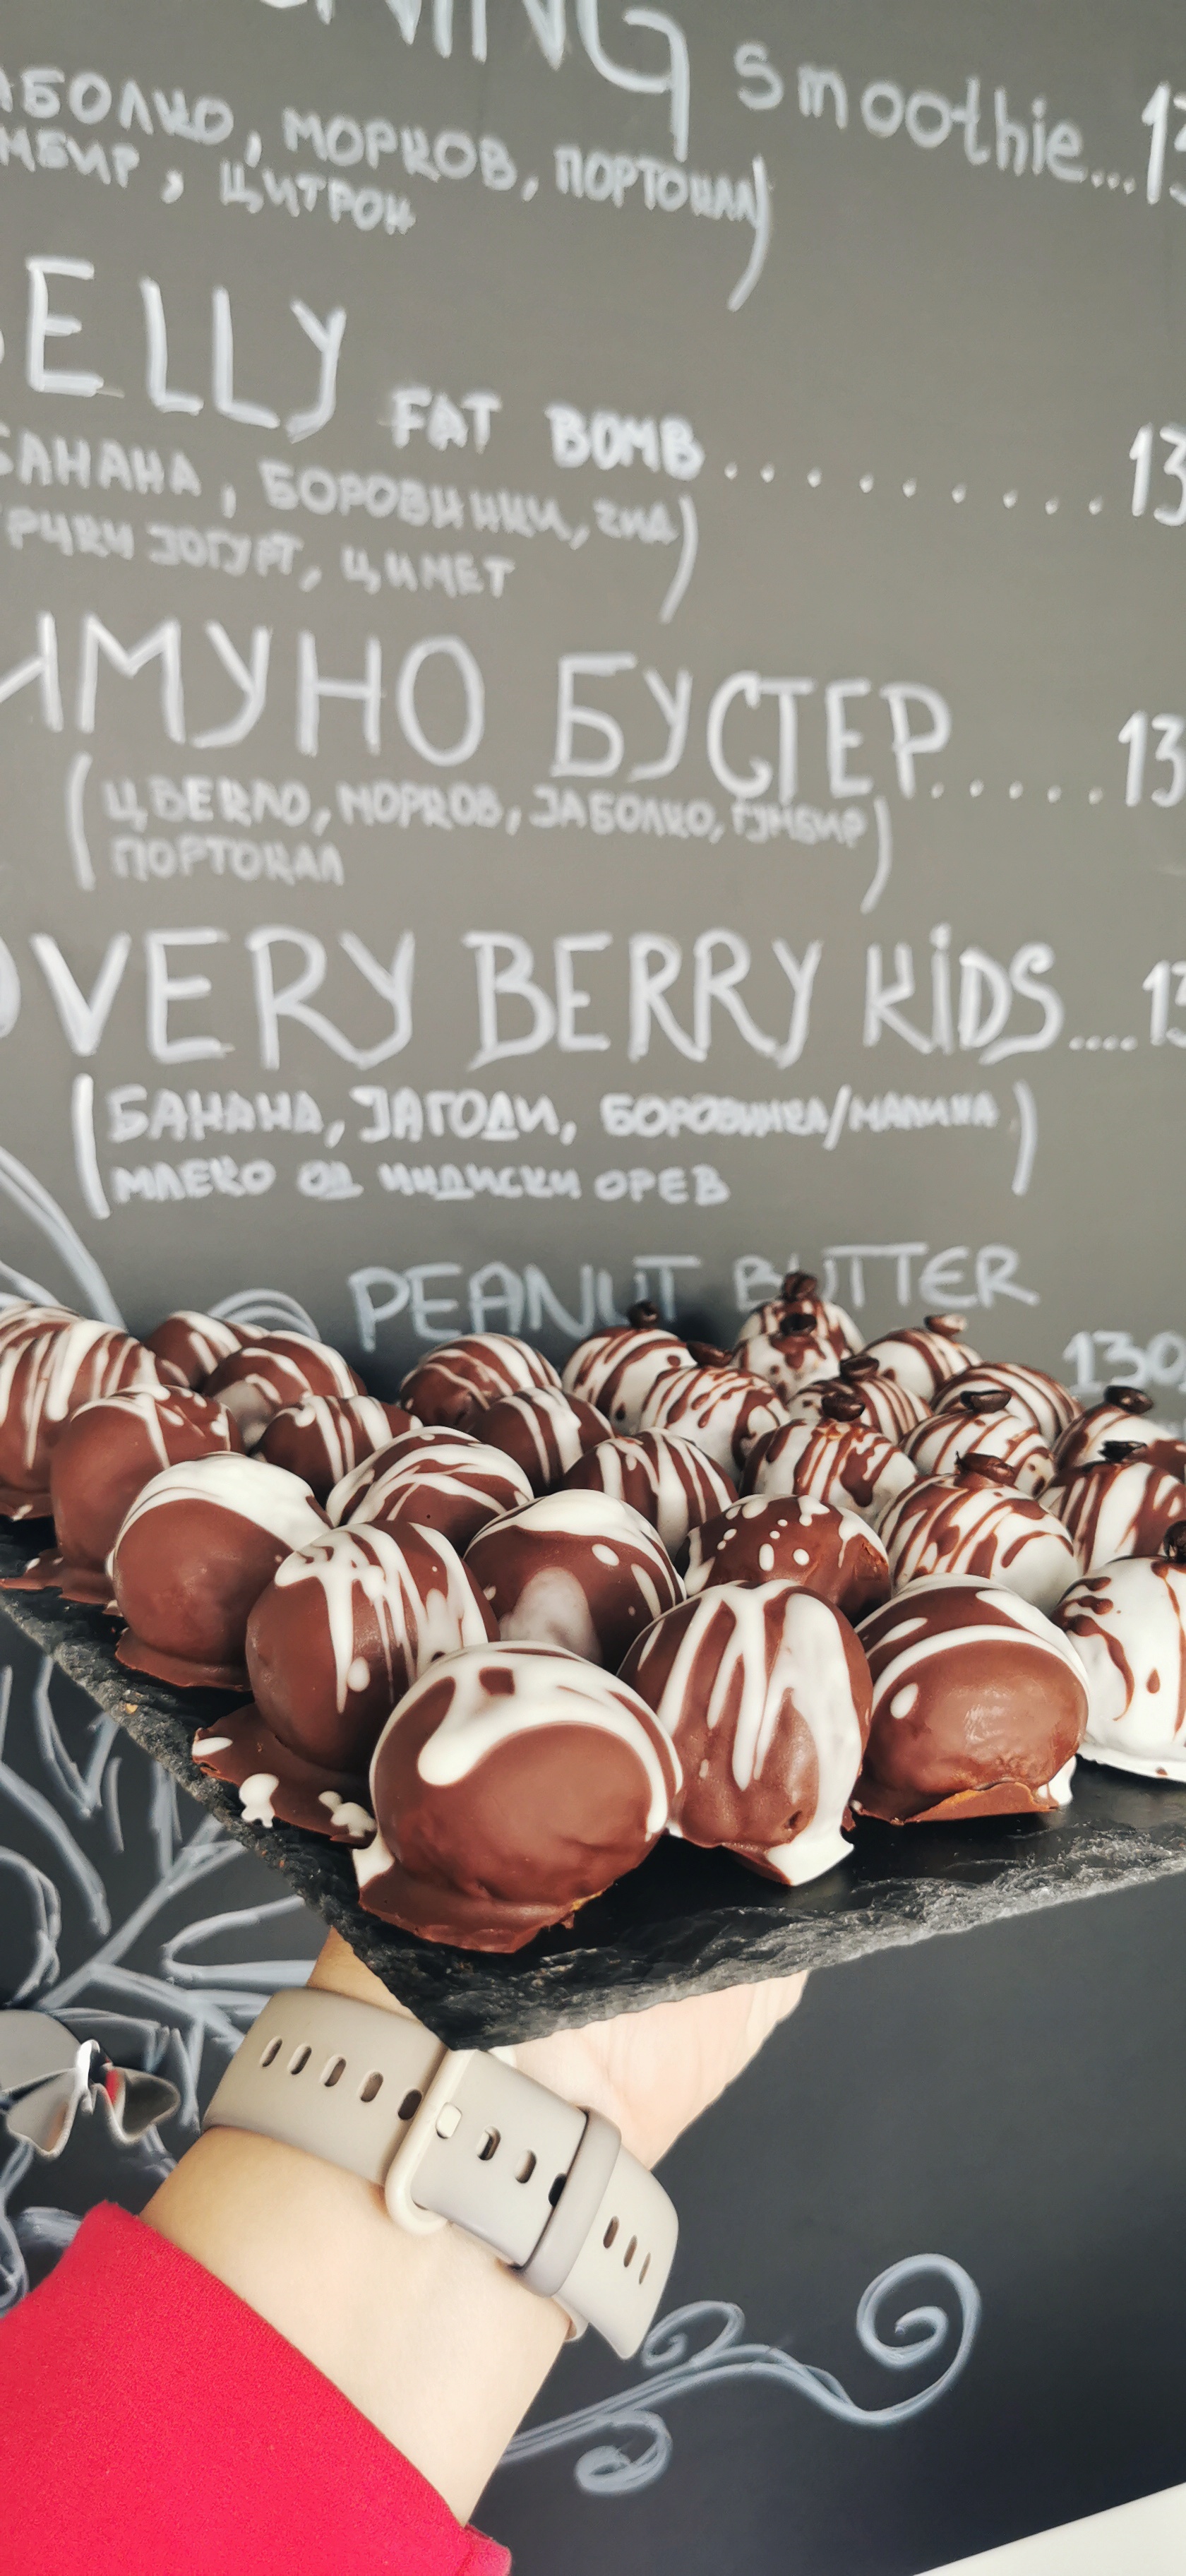 smoothie...
МОРКОВ, ПОРТОКАЛ)
ЦИТРОН
FAT BOMB..........
БАНАНА, БОРОВИНКИ, ЧИА)
ЈОГУРТ, ЦИМЕТ
ИМУНО БУСТЕР.....13
(ЦВЕКЛО, МОРКОВ, ЈАБОЛКО, ЃУМБИР)
ПОРТОКАЛ
VERY BERRY KiDS....13
(БАНАНА, ЈАГОДИ, БОРОВИНКА/МАЛИНА)
МЛЕКО ОД ИНДИСКИ ОРЕВ
PEANUT BUTTER
130